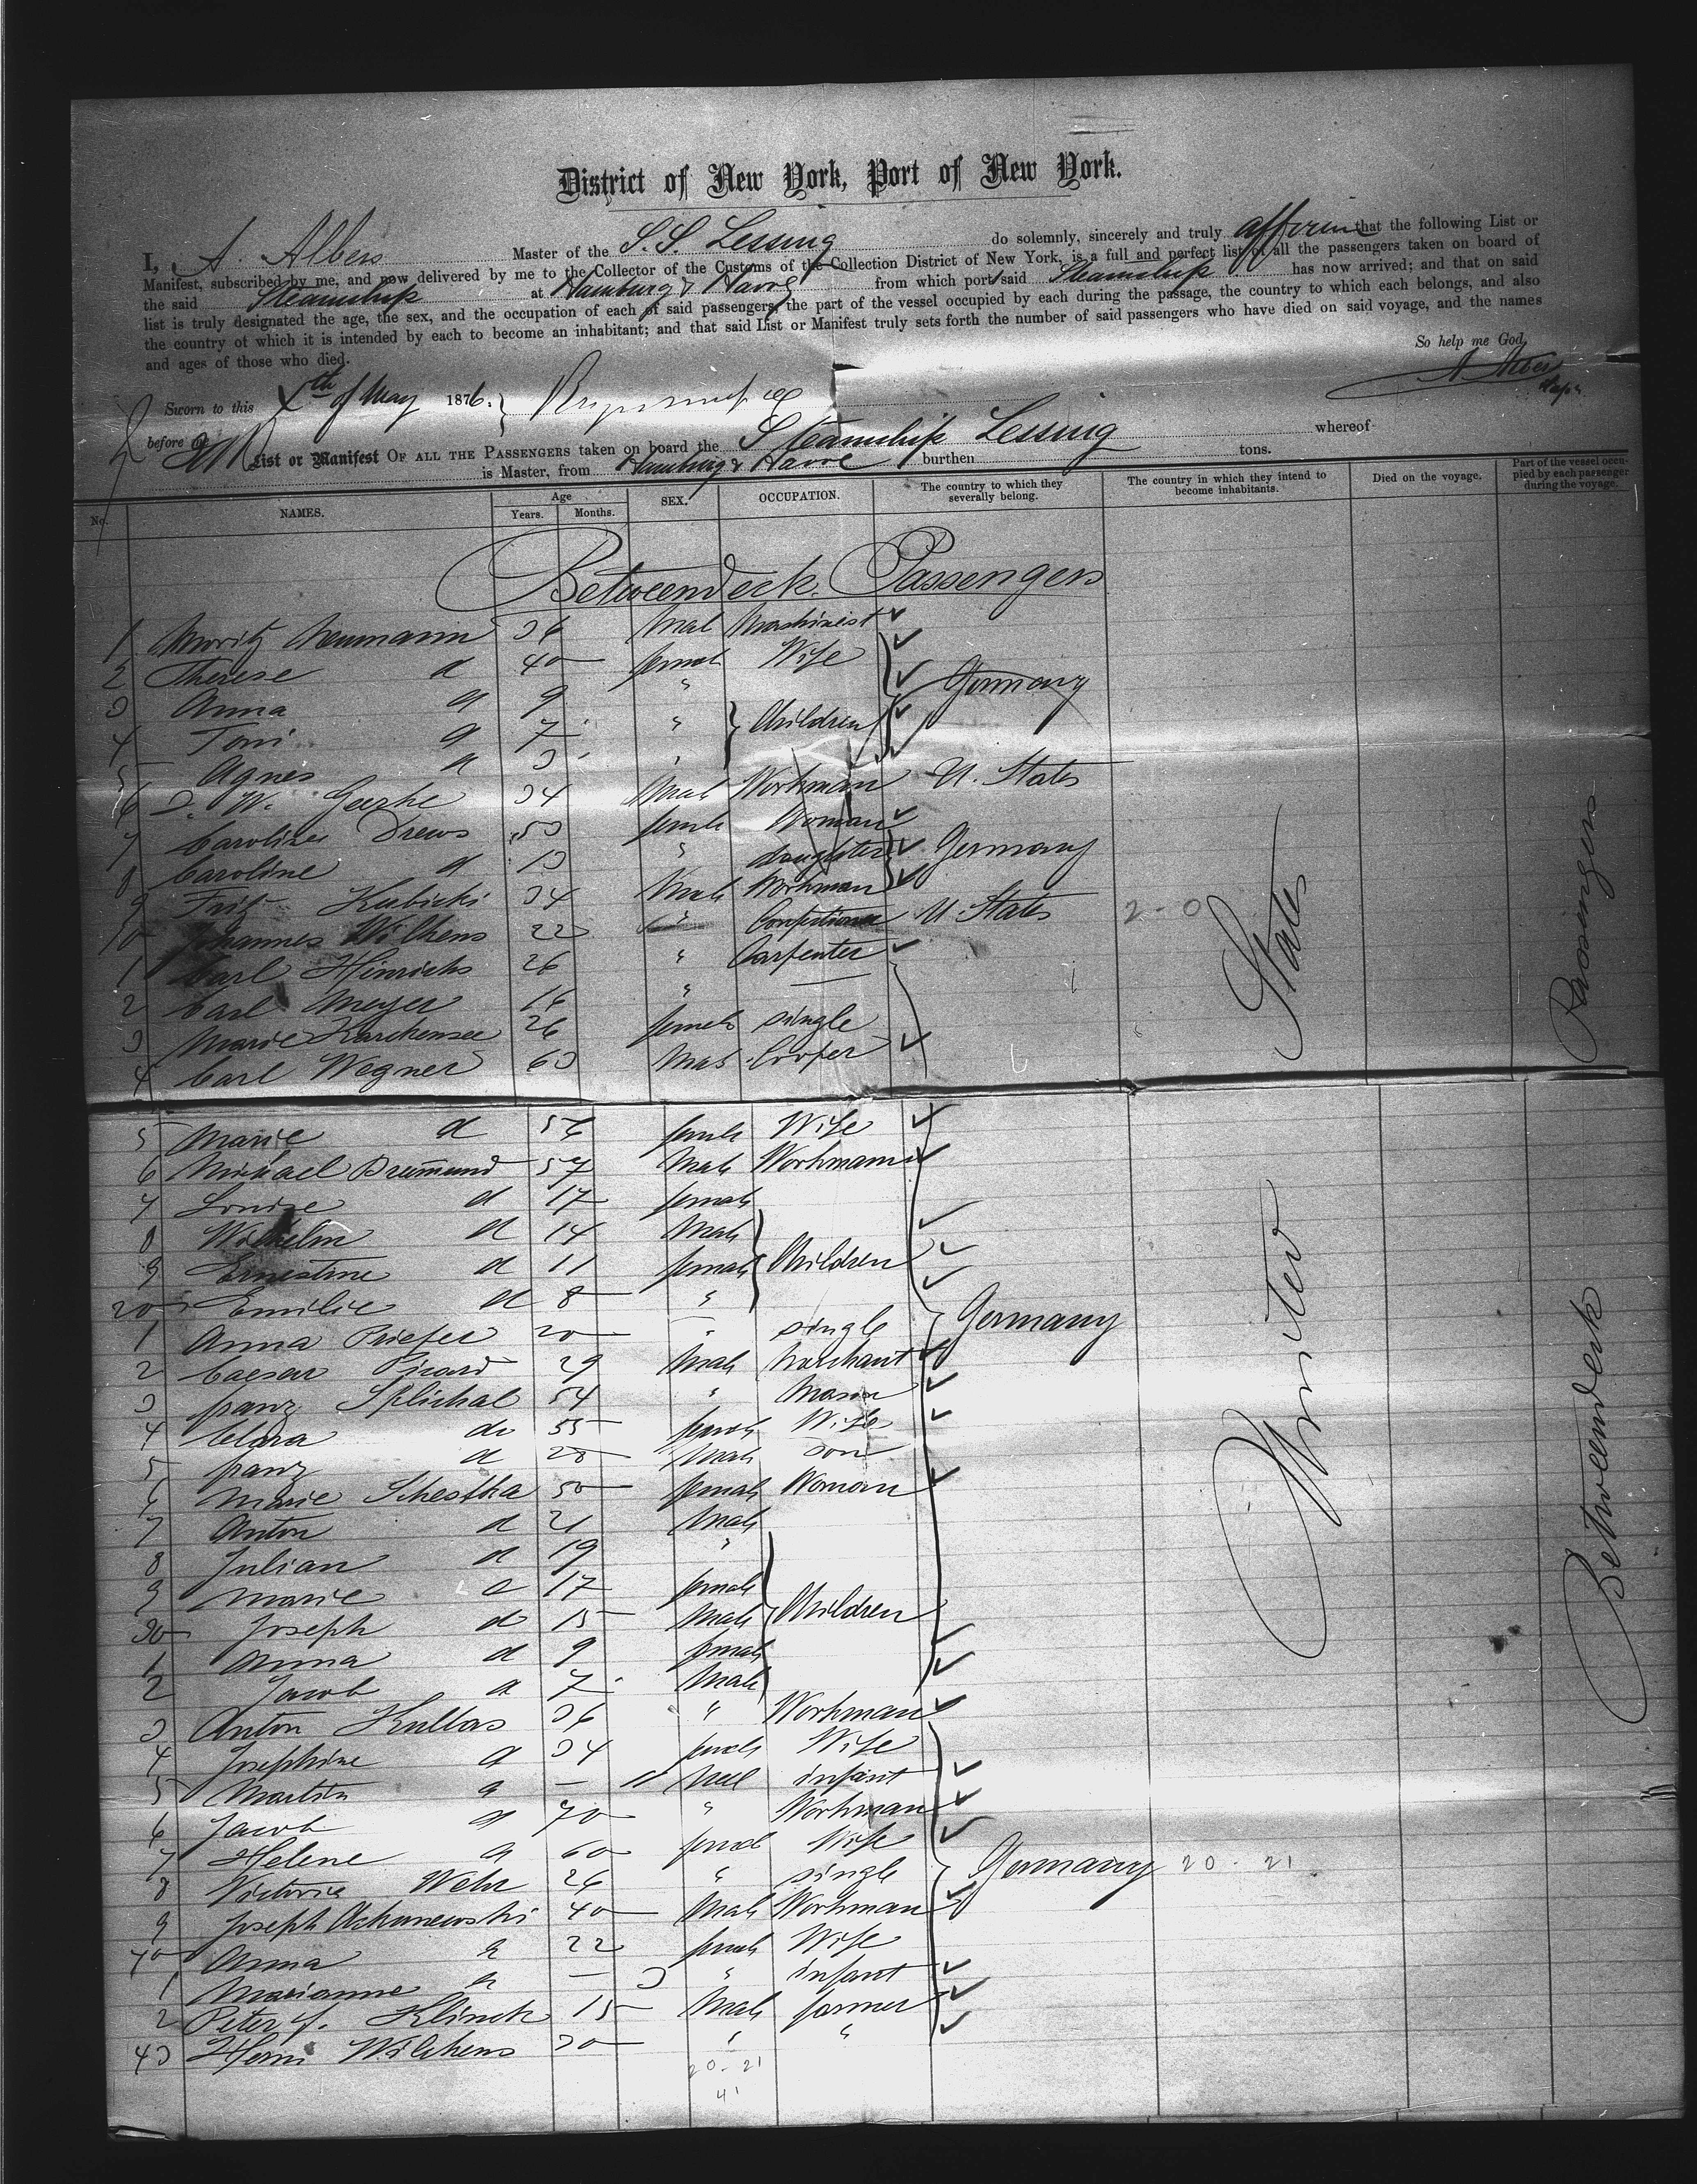 District of New York, Port of New York.
I, A. Albers Master of the S.S. Lessing do solemnly, sincerely and truly affirm that the following List or
Manifest, subscribed by me, and now delivered by me to the Collector of the Customs of the Collection District of New York, is a full and perfect list of all the passengers taken on board of
the said Steamship at Hamburg & Havre from which port said Steamship has now arrived; and that on said
list is truly designated the age, the sex, and the occupation of each of said passengers, the part of the vessel occupied by each during the passage, the country to which each belongs, and also
the country of which it is intended by each to become an inhabitant; and that said List or Manifest truly sets forth the number of said passengers who have died on said voyage, and the names
and ages of those who died.
So help me God,
A Albers
Sworn to this th of May 1876.
before me
List or Manifest OF ALL THE PASSENGERS taken on board the Steamship Lessing whereof
is Master, from Hamburg & Havre burthen tons.
No. NAMES. Age Years. Months. SEX. OCCUPATION. The country to which they severally belong. The country in which they intend to become inhabitants. Died on the voyage. Part of the vessel occupied by each passenger during the voyage.
Betweendeck Passengers
1 Moritz Neumann 36 Mal Mashinist
2 Therese d 40 femal Wife
3 Anna d 9 " Germany
4 Toni d 7 " Children
5 Agnes d 3 "
6 W. Gerke 34 Mal Workman U. States
7 Caroline Drews 53 femal Woman
8 Caroline d 13 " daughter Germany
9 Fritz Kubicki 34 Mal Workman
10 Johannes Wilkens 22 " U. States 2-0
1 Carl Hinrichs 26 " Carpenter
2 Carl Meyer 16 " —
3 Marie 26 female single
4 Carl Wegner 63 Mal Cooper
5 Marie d 56 femal Wife
6 Michael 57 Male Workmann
7 Louise d 17 female
8 Wilhelm d 14 Male
9 Ernestine d 11 female Children
20 Emilie d 8 "
1 Anna Priefer 20 " single Germany
2 Caesar Picard 29 Male Marchant
3 franz Splichal 54 " Mason
4 Clara do 55 female Wife
5 franz d 28 Male son
6 Marie Schestka 50 female Woman
7 Anton d 21 Male
8 Julian d 19 "
9 Marie d 17 female
30 Joseph d 15 Male Children
1 Anna d 9 female
2 Jacob d 7 Male
3 Anton Kullas 36 " Workman
4 Josephine d 34 female Wife
5 Martin d — 11 Mal infant
6 Jacob d 70 " Workman
7 Helene d 60 femal Wife
8 Victoria Wehr 26 " single Germany 20 - 21
9 Joseph 40 Male Workman
40 Anna d 22 female Wife
1 Marianne d — 3 " infant
2 Peter J. Klinck 15 Male farmer
43 Herm Wilckens 30 " "
20 - 21
41
United States
Betweendeck Passengers